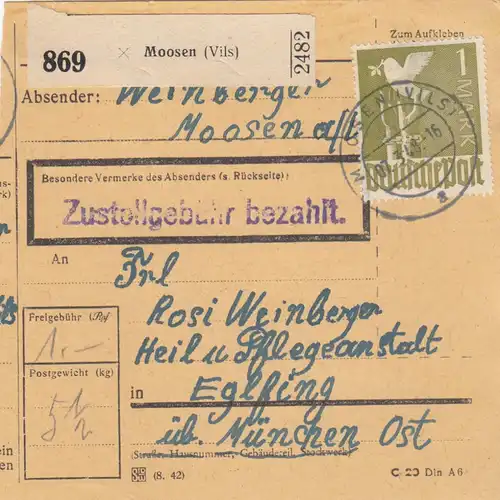 Zum Aufkleben
869 × Moosen (Vils) 2482
Absender: Weinberger
Moosen a/
1 MARK
Deutsche Post
Besondere Vermerke des Absenders (s. Rückseite):
Zustellgebühr bezahlt.
An
Frl
Rosi Weinberger
Heil u Pflegeanstalt
in Eglfing
üb. München Ost
(Straße, Hausnummer, Gebäudeteil, Stockwerk)
Freigebühr (Rpf)
1.—
Postgewicht (kg)
5 1/2
ein
en
(8. 42)
C 20 Din A 6